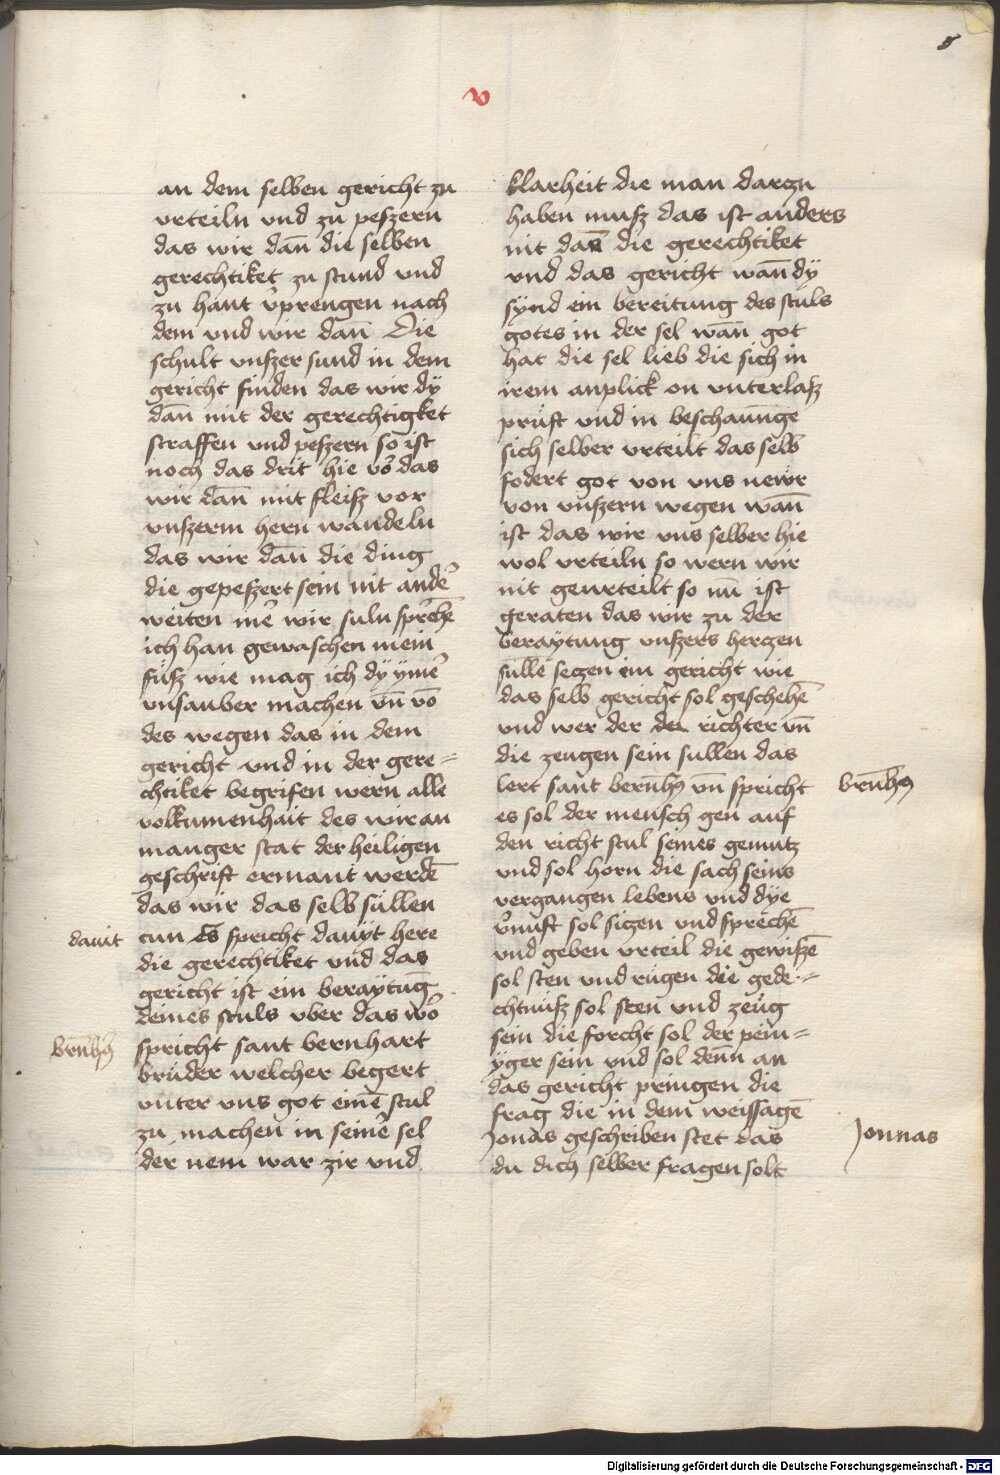 v
an dem selben gericht zu
vrteiln vnd zu peszern
das wir dañ die selben
gerechtiket zu stund vnd
zu hant v̉prengen nach
dem vnd wir dañ Die
schult vnszer sund in dem
gericht finden das wir dÿ
dañ mit der gerechtigket
straffen vnd peszern so ist
noch das drit hie vō das
wir dañ mit fleisz vor
vnszerm hern wandeln
das wir dañ die ding
die gepeszert sein nit andē
weiten mē wir suln sprechē
ich han gewaschen mein
füsz wie mag ich dÿ ymē
vnsauber machen vn̄ vō
des wegen das in dem
gericht vnd in der gere=
chtiket begrifen wern alle
volkumenhait des wir an
manger stat der heiligen
geschrift ermant werdē
das wir das selb süllen
dauit
tun Es spricht dauÿt here
die gerechtiket vnd das
gericht ist ein beraÿtūg
deines stuls vber das wō
bern̄hꝰ
spricht sant bernhart
brüder welcher begert
vnter vns got einē stul
zu machen in seinē sel
der nem war zir vnd
klarheit die man darzu
haben musz das ist anders
nit dan̄ die gerechtiket
vnd das gericht wan̄ dÿ
sÿnd ein bereitung des stuls
gotes in der sel wan̄ got
hat die sel lieb die sich in
irem anplick on vnterlasz
prüft vnd in beschaūnge
sich selber vrteilt das selb
fodert got von vns newr
von vnszern wegen wan̄
ist das wir vns selber hie
wol vrteiln so wern wir
nit geurteilt so nu̅ ist
geraten das wir zu der
beraÿtung vnszers herczen
sülle seczen ein gericht wie
das selb gericht sol geschehē
vnd wer der der richter vn̄
die zeugen sein sullen das
lert sant bern̄hꝰ vn̄ spricht
bern̄hꝰ
es sol der mensch gen auf
den richt stul seines gemutz
vnd sol horn die sach seins
vergangen lebens vnd dÿe
v̉nuft sol siczen vnd sprechē
vnd geben vrteil die gewiszē
sol sten vnd rügen die gede=
chtnüsz sol sten vnd zeüg
sein die forcht sol der pein=
ÿger sein vnd sol denn an
das gericht pringen die
frag die in dem weissagē
Jonas geschriben stet das
Jonnas
du dich selber fragen solt
Digitalisierung gefördert durch die Deutsche Forschungsgemeinschaft - DFG